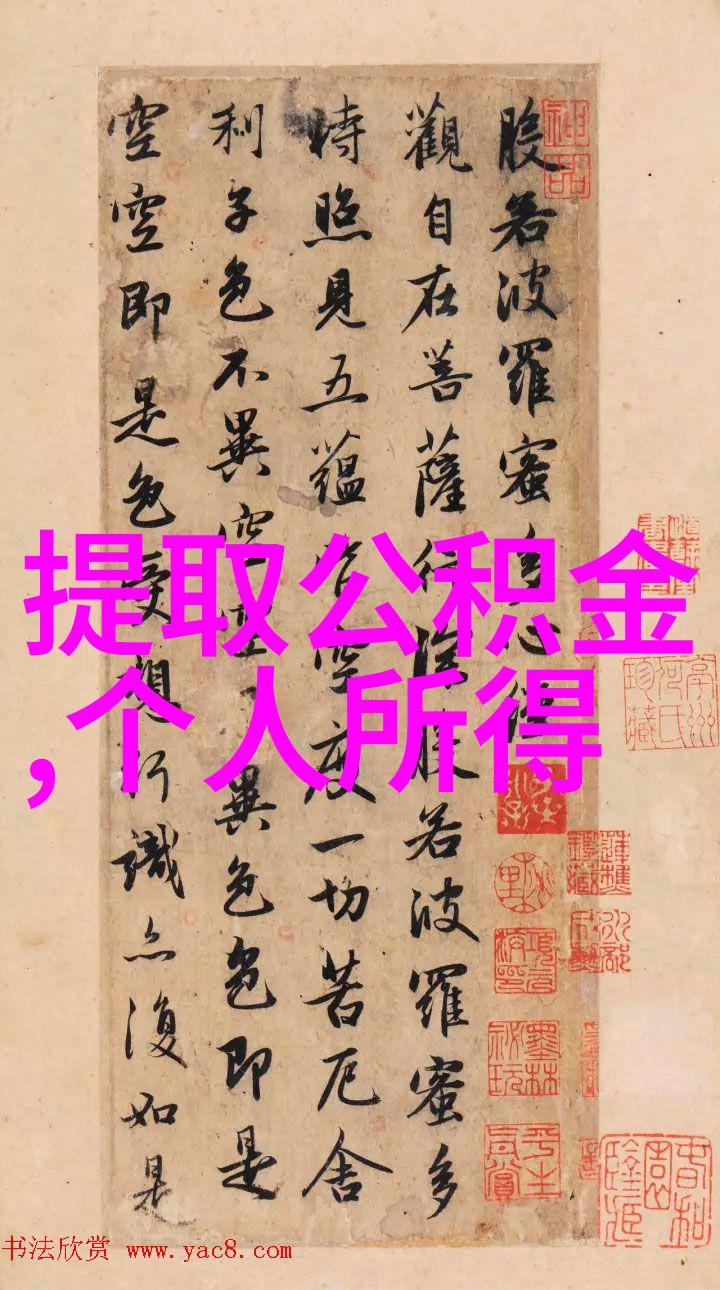 般若波羅蜜多心經
觀自在菩薩行深般若波羅蜜多
時照見五蘊皆空度一切苦厄舍
利子色不異空空不異色色即是
空空即是色受想行識亦復如是
提取公积金
,个人所得
书法欣赏 www.yac8.com